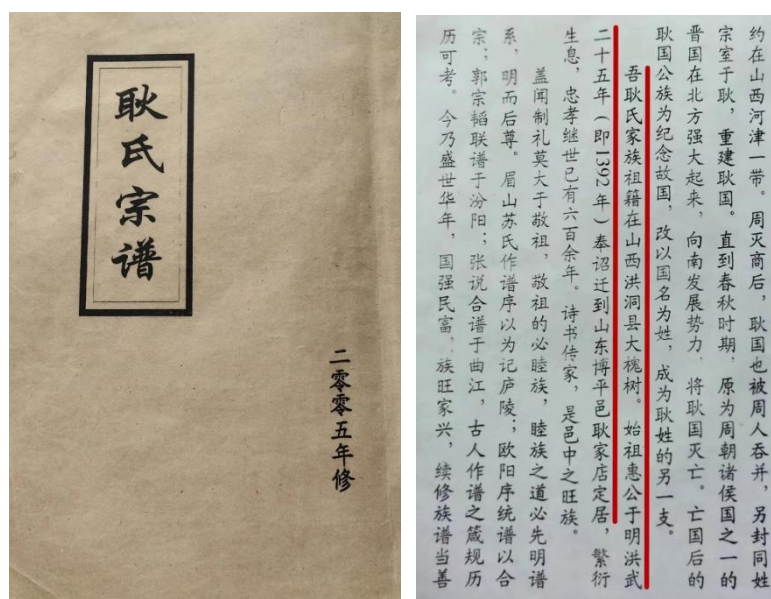 耿氏宗谱
二零零五年修
约在山西河津一带。周灭商后，耿国也被周人吞并，另封同姓
宗室于耿，重建耿国。直到春秋时期，原为周朝诸侯国之一的
晋国在北方强大起来，向南发展势力，将耿国灭亡。亡国后的
耿国公族为纪念故国，改以国名为姓，成为耿姓的另一支。
吾耿氏家族祖籍在山西洪洞县大槐树。始祖惠公于明洪武
二十五年（即1392年）奉诏迁到山东博平邑耿家店定居，繁衍
生息，忠孝继世已有六百余年。诗书传家，是邑中之旺族。
盖闻制礼莫大于敬祖，敬祖的必睦族，睦族之道必先明谱
系，明而后尊。眉山苏氏作谱序以为记庐陵；欧阳序统谱以合
宗；郭宗韬联谱于汾阳；张说合谱于曲江，古人作谱之箴规历
历可考。今乃盛世华年，国强民富，族旺家兴，续修族谱当善